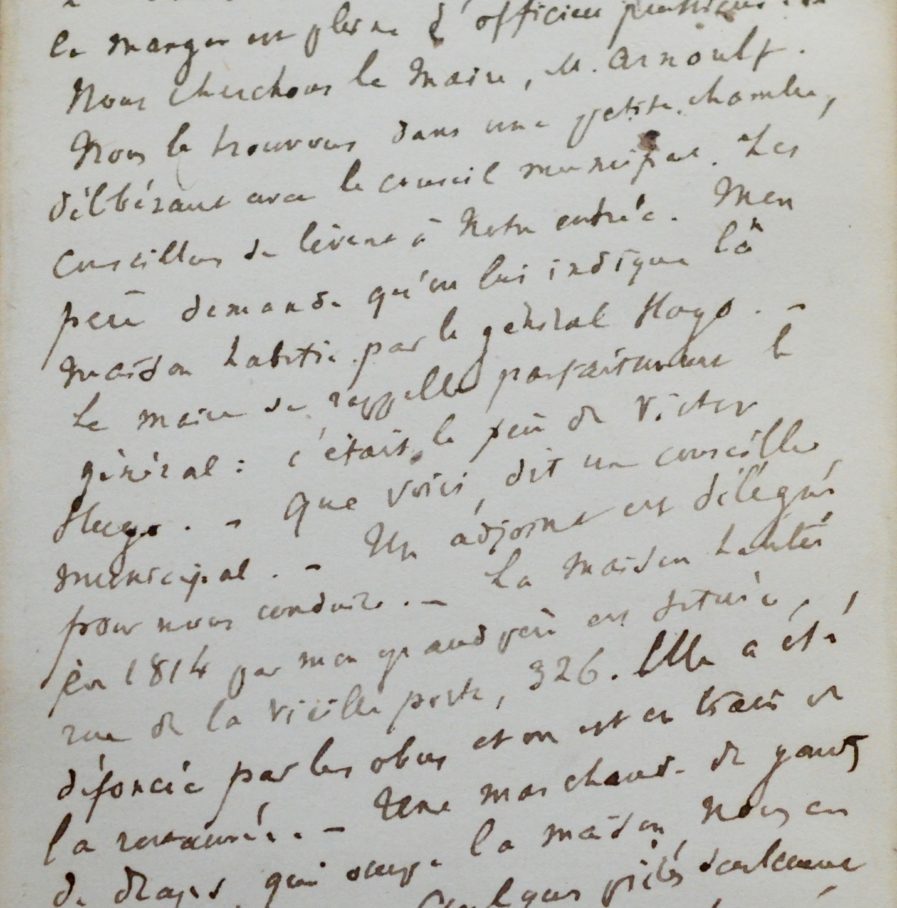 la manger est pleine d'officiers prussiens.
Nous cherchons le Maire, M. Arnoulf.
Nous le trouvons dans une petite chambre,
délibérant avec le conseil municipal. Les
conseillers se lèvent à notre entrée. Mon
père demande qu'on lui indique la
maison habitée par le général Hugo. –
Le maire se rappelle parfaitement le
général : c'était le père de Victor
Hugo. – Que voici, dit un conseiller
municipal. – Un adjoint est délégué
pour nous conduire. – La maison habitée
en 1814 par mon grand père est située,
rue de la vieille porte, 326. Elle a été
défoncée par les obus et on est en train de
la restaurer. – Une marchande de
de draps qui occupe la maison, nous en
Quelques pièces seulement